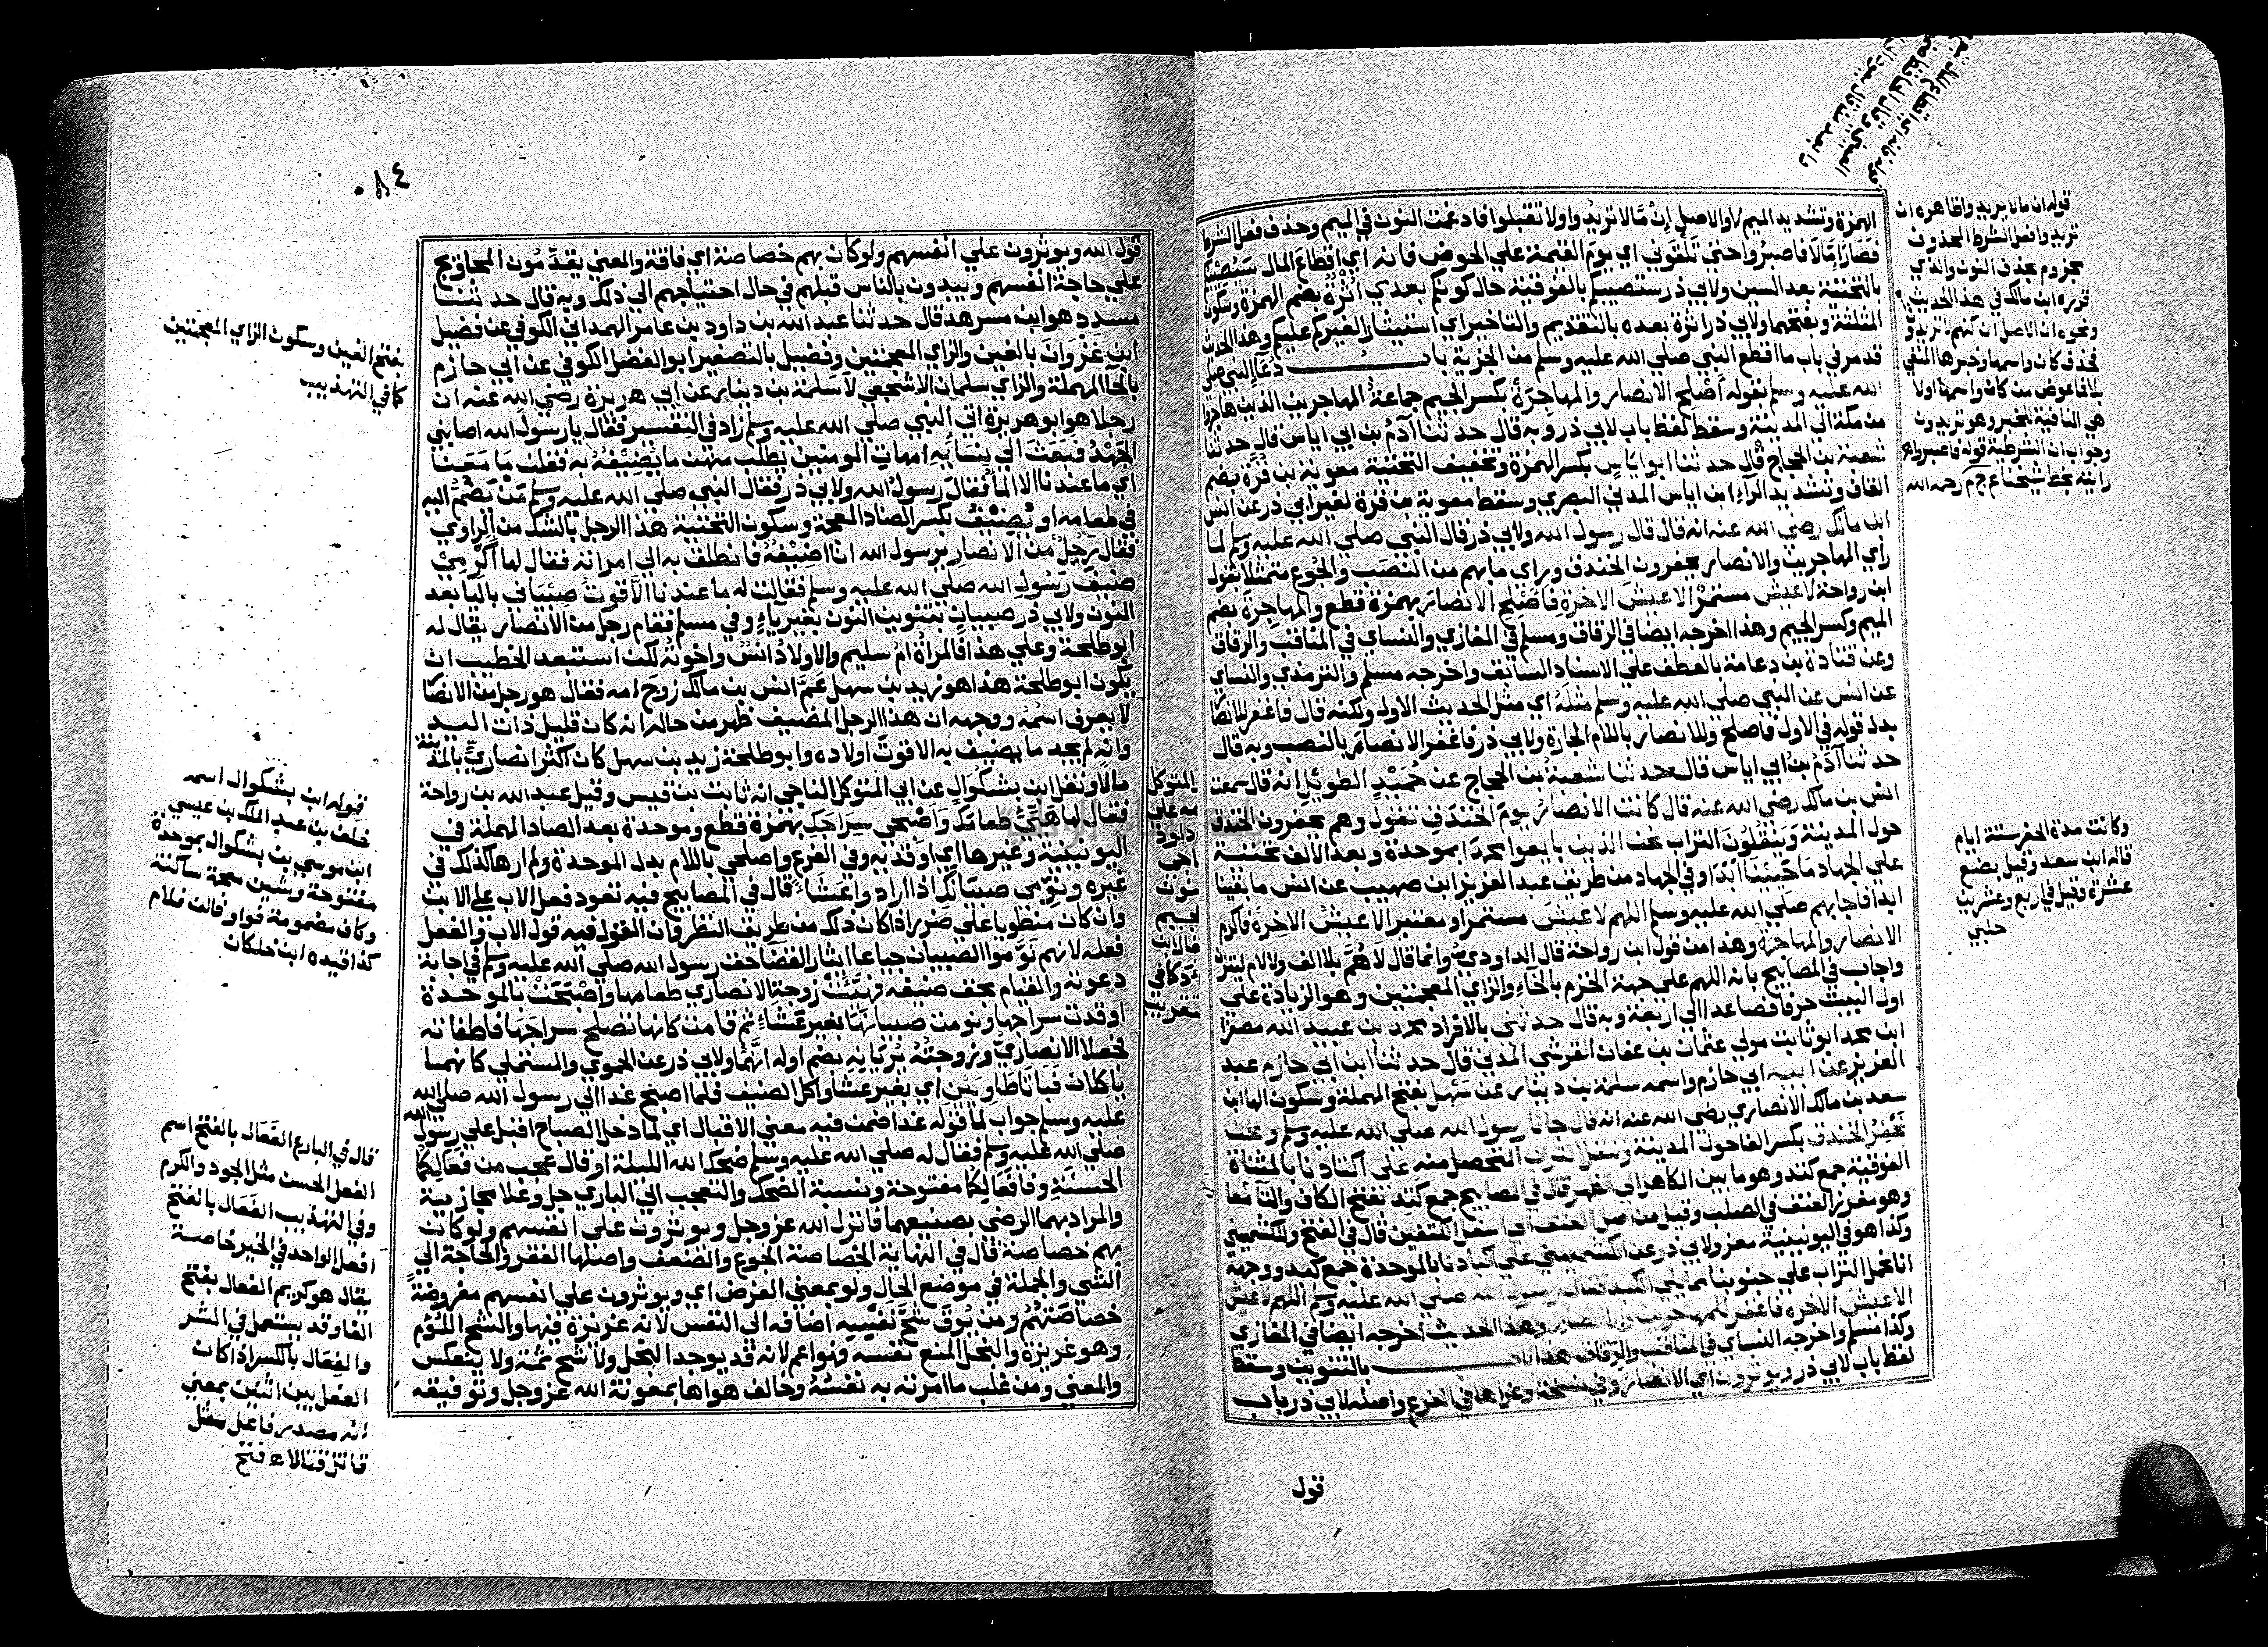 الهمزة وتشديد الميم والاصل إن ما لا تريدوا ولا تقبلوا فادغمت النون في الميم وحذف فعل الشرط
فصار إمّا لا فاصبروا حتى تلقوني اي يوم القيمة على الحوض فانه اي اقطاع المال
بالتحتية بعد السين ولابي ذر ستصيبكم بالفوقية حال كونكم بعدي أُثْرَة بضم الهمزة وسكون
المثلثة وبفتحهما ولابي ذر اثرة بعده بالتقديم والتاخير اي استيثار لغيركم عليكم وهذا الحديث
قد مر في باب ما اقطع النبي صلى الله عليه وسلم من الجزية باب دُعَآءِ النبي صلى
الله عليه وسلم بقوله أَصْلِحِ الانصار والمهاجِرَة بكسر الجيم جماعة المهاجرين الذين هاجروا
من مكة الى المدينة وسقط لفظ باب لابي ذر وبه قال حدثنا آدم بن ابي اياس قال حدثنا
شعبة بن الحجاج قال حدثنا ابو اياس بكسر الهمزة وتخفيف التحتية معوية بن قُرّة بضم
القاف وتشديد الرآء ابن اياس المدني البصري وسقط معوية بن قرة لغير ابي ذر عن انس
ابن مالك رضي الله عنه انه قال قال رسول الله ولابي ذر قال النبي صلى الله عليه وسلم لما
راى المهاجرين والانصار يحفرون الخندق وراى ما بهم من النصب والجوع متمثلا بقول
ابن رواحة لا عيش مستمر الا عيش الاخرة فاصلح الانصار بهمزة قطع والمهاجرة بضم
الميم وكسر الجيم وهذا اخرجه ايضا في الرقاق ومسلم في المغازي والنساي في المناقب والرقاق
وعن قتادة بن دعامة بالعطف على الاسناد السابق واخرجه مسلم والترمذي والنساي
عن انس عن النبي صلى الله عليه وسلم مثله اي مثل الحديث الاول ولكنه قال فاغفر للانصار
بدل قوله في الاول فاصلح وللانصار باللام الجارة ولابي ذر فاغفر الانصار بالنصب وبه قال
حدثنا آدم بن ابي اياس قال حدثنا شعبة بن الحجاج عن حُمَيْدٍ الطويل انه قال سمعت
انس بن مالك رضي الله عنه قال كانت الانصار يوم الخندق تقول وهم يحفرون الخندق
حول المدينة وينقلون التراب نحن الذين بايعوا محمدا بموحدة وبعد الالف تحتية
على الجهاد ما حَيِينَا اَبَدًا وفي الجهاد من طريق عبد العزيز ابن صهيب عن انس ما بقينا
ابدا فاجابهم صلى الله عليه وسلم اللهم لا عيش مستمرا ومعتبر الا عيش الاخرة فاكرم
الانصار والمهاجرة وهذا من قول ابن رواحة قال الداودي وانما قال لاهُمَّ بلا الف ولا لام ليتزن
واجاب في المصابيح بانه اللهم على جهة الخزم بالخآء والزاي المعجمتين وهو الزيادة على
اول البيت حرفا فصاعدا الى اربعة وبه قال حدثني بالافراد محمد بن عبيد الله مصغرا
ابن محمد ابو ثابت مولى عثمان بن عفان القرشي المدني قال حدثنا ابن ابي حازم عبد
العزيز عن ابيه ابي حازم واسمه سلمة بن دينار عن سَهْل بفتح المهملة وسكون الها ابن
سعد بن مالك الانصاري رضي الله عنه انه قال جانا رسول الله صلى الله عليه وسلم ونحن
نَحفِرُ الخندق بكسر الفا حول المدينة وننقل التراب المتحصل منه على اكتادنا بالمثناة
الفوقية جمع كتد وهو ما بين الكاهل الى الظهر قال في المصابيح جمع كتد بفتح الكاف والتآء معا
وهو مغرز العنق في الصلب وقيل من اصل العنق الى اسفل الكتفين قال في الفتح وللكشميهني
وكذا هو في اليونينية معزو لابي ذر عن الكشميهني على اكبادنا بالموحدة جمع كبد ووجهه
انا نحمل التراب على جنوبنا مما يلي الكبد فقال رسول الله صلى الله عليه وسلم اللهم لا عيش
الا عيش الاخره فاغفر للمهاجرين والانصار وهذا الحديث اخرجه ايضا في المغازي
وكذا مسلم واخرجه النساي في المناقب والرقاق هذا باب بالتنوين وسقط
لفظ باب لابي ذر ويوثرون اي الانصار وفي نسخة وعزاها في الفرع واصله لابي ذر باب
قول
قوله ان مالا يريدوا ظاهره ان
تريدوا فعل الشرط المحذوف
مجزوم بحذف النون والذي
قرره ابن مالك في هذا الحديث
ونحوه ان الاصل ان كنتم لا تريدون
فحذف كان واسمها وخبرها المنفي
بلا فما عوض من كان واسمها ولا
هي النافية للخبر وهو تريدون
وجواب ان الشرطية قوله فاصبروا اه
رايته بخط شيخنا ع ج م رحمه الله
وكانت مدة الحفر ستة ايام
قاله ابن سعد وقيل بضع
عشرة وقيل اربع وعشرين
حلبي
٨٤٠
قول الله ويوثرون على انفسهم ولو كان بهم خصاصة اي فاقة والمعنى يقدِّمُون المحاويج
على حاجة انفسهم ويبدون بالناس قبلهم في حال احتياجهم الى ذلك وبه قال حدثنا
مسدد هو ابن مسرهد قال حدثنا عبد الله بن داود بن عامر الهمداني الكوفي عن فضيل
ابن غَزْوَانَ بالغين والزاي المعجمتين وفضيل بالتصغير ابو الفضل الكوفي عن ابي حازم
بالحآ المهملة والزاي سلمان الاشجعي لا سلمة بن دينار عن ابي هريرة رضي الله عنه ان
رجلا هو ابو هريرة اتى النبي صلى الله عليه وسلم زاد في التفسير فقال يا رسول الله اصابني
الجَهْدُ فبَعَثَ الى نِسَآئِهِ امهات المومنين يطلب منهن ما يُضِيْفُهُ به فقلن مَا مَعَنا
اي ما عندنا الا المآ فقال رسول الله ولابي ذر فقال النبي صلى الله عليه وسلم مَنْ يَضُمُّ اليه
في طعامه او يُضِيْفُ بكسر الضاد المعجمة وسكون التحتية هذا الرجل بالشك من الراوي
فقال رجل من الانصار يرسول الله انا اضِيْفُهُ فانطلق به الى امراته فقال لها اَكْرِمِيْ
ضيفَ رَسُولِ الله صلى الله عليه وسلم فقالت له ما عندنا الا قوتُ صِبْيَانِي باليا بعد
النون ولابي ذر صبيانٍ بتنوين النون بغير ياءٍ وفي مسلم فقام رجل من الانصار يقال له
ابو طلحة وعلى هذا فالمراة ام سليم والاولاد انس واخوته لكن استبعد الخطيب ان
يكون ابو طلحة هذا هو زيد بن سهل عَمّ انس بن مالك زوج امه فقال هو رجل من الانصار
لا يعرف اسمه ووجهه ان هذا الرجل المضيف ظهر من حاله انه كان قليل ذات اليد
وانه لم يجد ما يضيف به الا قوت اولاده وابو طلحة زيد بن سهل كان اكثر انصاريّ بالمدينة
مالا ونقل ابن بشكوال عن ابي المتوكل الناجي انه ثابت بن قيس وقيل عبد الله بن رواحة
فقال لها هَيِّئِي طعامَكِ وَاَصْبِحِي سِرَاجَكِ بهمزة قطع وموحدة بعد الصاد المهملة في
اليونينية وغيرها اي اوقديه وفي الفرع واصلحي باللام بدل الموحدة ولم ارها كذلك في
غيره ونَوِّمِي صبيانَكِ اذا اراد واعَشَآءً قال في المصابيح فيه نفوذ فعل الاب على الابن
وان كان منطويا على ضرر اذا كان ذلك من طريق النظر وان القول فيه قول الاب والفعل
فعله لانهم نَوّموا الصبيان جياعا ايثارا لقضآحق رسول الله صلى الله عليه وسلم في اجابة
دعوته والقيام بحق ضيفه فهَيّئت زوجة الانصاري طعامها وَاَصْبَحَتْ بالموحدة
اوقدت سراجها ونومت صبيانَهَا بغير عَشَآءٍ ثم قامت كانها تصلح سراجَها فاطفاته
فجعلا الانصاريّ وزوجته يُرِيَانِهِ بضم اوله انّهما ولابي ذر عن الحموي والمستملي كانهما
ياكلان فَبَاتَا طَاوِيَيْنِ اي بغير عشا واكل الضيف فلما اصبح غدا الى رسول الله صلى الله
عليه وسلم جواب لما قوله غدا ضمن فيه معنى الاقبال اي لما دخل الصباح اقبل على رسول الله
صلى الله عليه وسلم فقال له صلى الله عليه وسلم ضحك الله الليلة او قال عجب من فَعَالِكما
الحسنَةِ وفا فَعَالِكما مفتوحة ونسبة الضحك والتعجب الى الباري جل وعلا مجازية
والمراد بهما الرضى بصنيعهما فانزل الله عز وجل ويوثرون على انفسهم ولو كان
بهم خصاصة قال في النهاية الخصاصة الجوع والضعف واصلها الفقر والحاجة الى
الشي والجملة في موضع الحال ولو بمعنى الفرض اي ويوثرون على انفسهم مفروضةً
خصاصَتُهُم ومن يُوقَ شُحَّ نَفْسِهِ اضافه الى النفس لانه غريزة فيها والشح اللوم
وهو غريزة والبخل المنع نفسه فهو اعم لانه قد يوجد البخل ولا شح ثمة ولا ينعكس
والمعنى ومن غلب ما امرته به نفسه وخالف هواها بمعونة الله عز وجل وتوفيقه
بفتح الغين وسكون الزاي المعجمتين
كما في التهذيب
قوله ابن بشكوال اسمه
خلف بن عبد الملك بن عيسى
ابن موسى بن بشكوال بموحدة
مفتوحة وشين معجمة ساكنة
وكاف مضمومة فواو فالف فلام
كذا قيده ابن خلكان
قال في البارع الفَعَال بالفتح اسم
الفعل الحسن مثل الجود والكرم
وفي التهذيب الفَعَال بالفتح
افعل الواحد في الخير خاصة
يقال هو كريم الفعال بفتح
الفا وقد يستعمل في الشر
والفِعَال بالكسر اذا كان
الفعل بين اثنين بمعنى
انه مصدر فاعل مثل
قاتل قتالا اه فتح